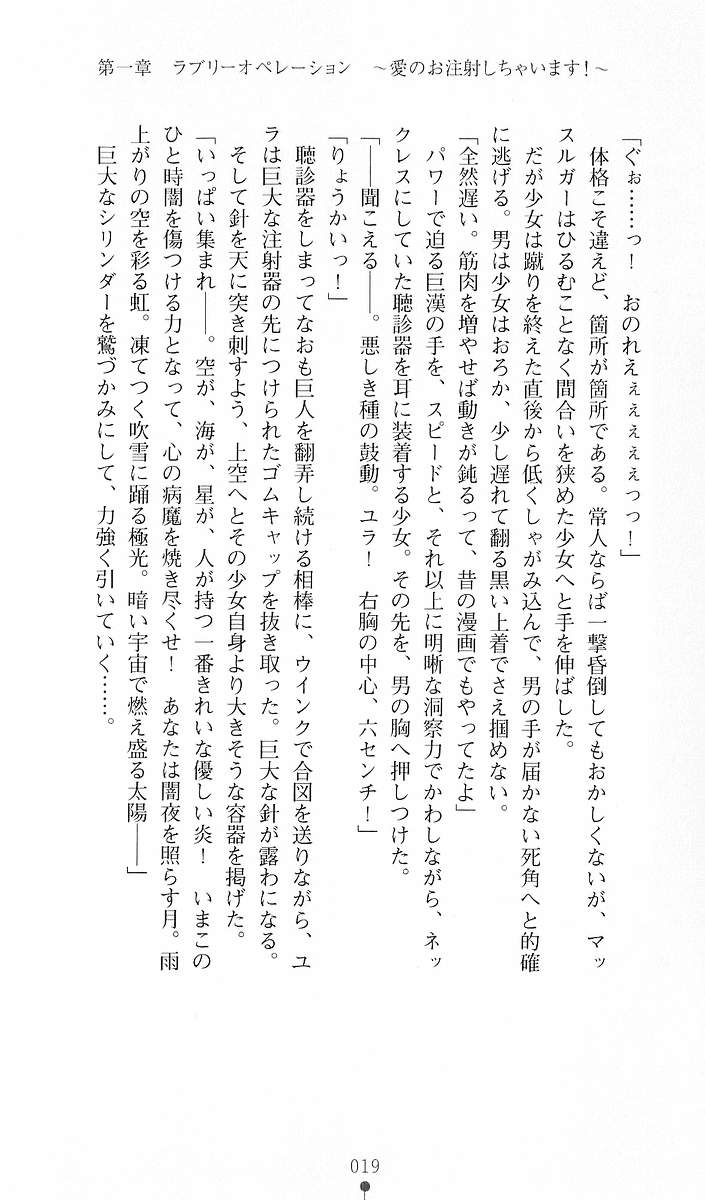 第一章　ラブリーオペレーション　～愛のお注射しちゃいます！～
「ぐぉ……っ！　おのれえぇぇぇぇっつっ！」
　体格こそ違えど、箇所が箇所である。常人ならば一撃昏倒してもおかしくないが、マッ
スルガーはひるむことなく間合いを狭めた少女へと手を伸ばした。
　だが少女は蹴りを終えた直後から低くしゃがみ込んで、男の手が届かない死角へと的確
に逃げる。男は少女はおろか、少し遅れて翻る黒い上着でさえ掴めない。
「全然遅い。筋肉を増やせば動きが鈍るって、昔の漫画でもやってたよ」
　パワーで迫る巨漢の手を、スピードと、それ以上に明晰な洞察力でかわしながら、ネッ
クレスにしていた聴診器を耳に装着する少女。その先を、男の胸へ押しつけた。
「――聞こえる――。悪しき種の鼓動。ユラ！　右胸の中心、六センチ！」
「りょうかいっ！」
　聴診器をしまってなおも巨人を翻弄し続ける相棒に、ウインクで合図を送りながら、ユ
ラは巨大な注射器の先につけられたゴムキャップを抜き取った。巨大な針が露わになる。
　そして針を天に突き刺すよう、上空へとその少女自身より大きそうな容器を掲げた。
「いっぱい集まれ――。空が、海が、星が、人が持つ一番きれいな優しい炎！　いまこの
ひと時闇を傷つける力となって、心の病魔を焼き尽くせ！　あなたは闇夜を照らす月。雨
上がりの空を彩る虹。凍てつく吹雪に踊る極光。暗い宇宙で燃え盛る太陽――」
　巨大なシリンダーを鷲づかみにして、力強く引いていく……。
019